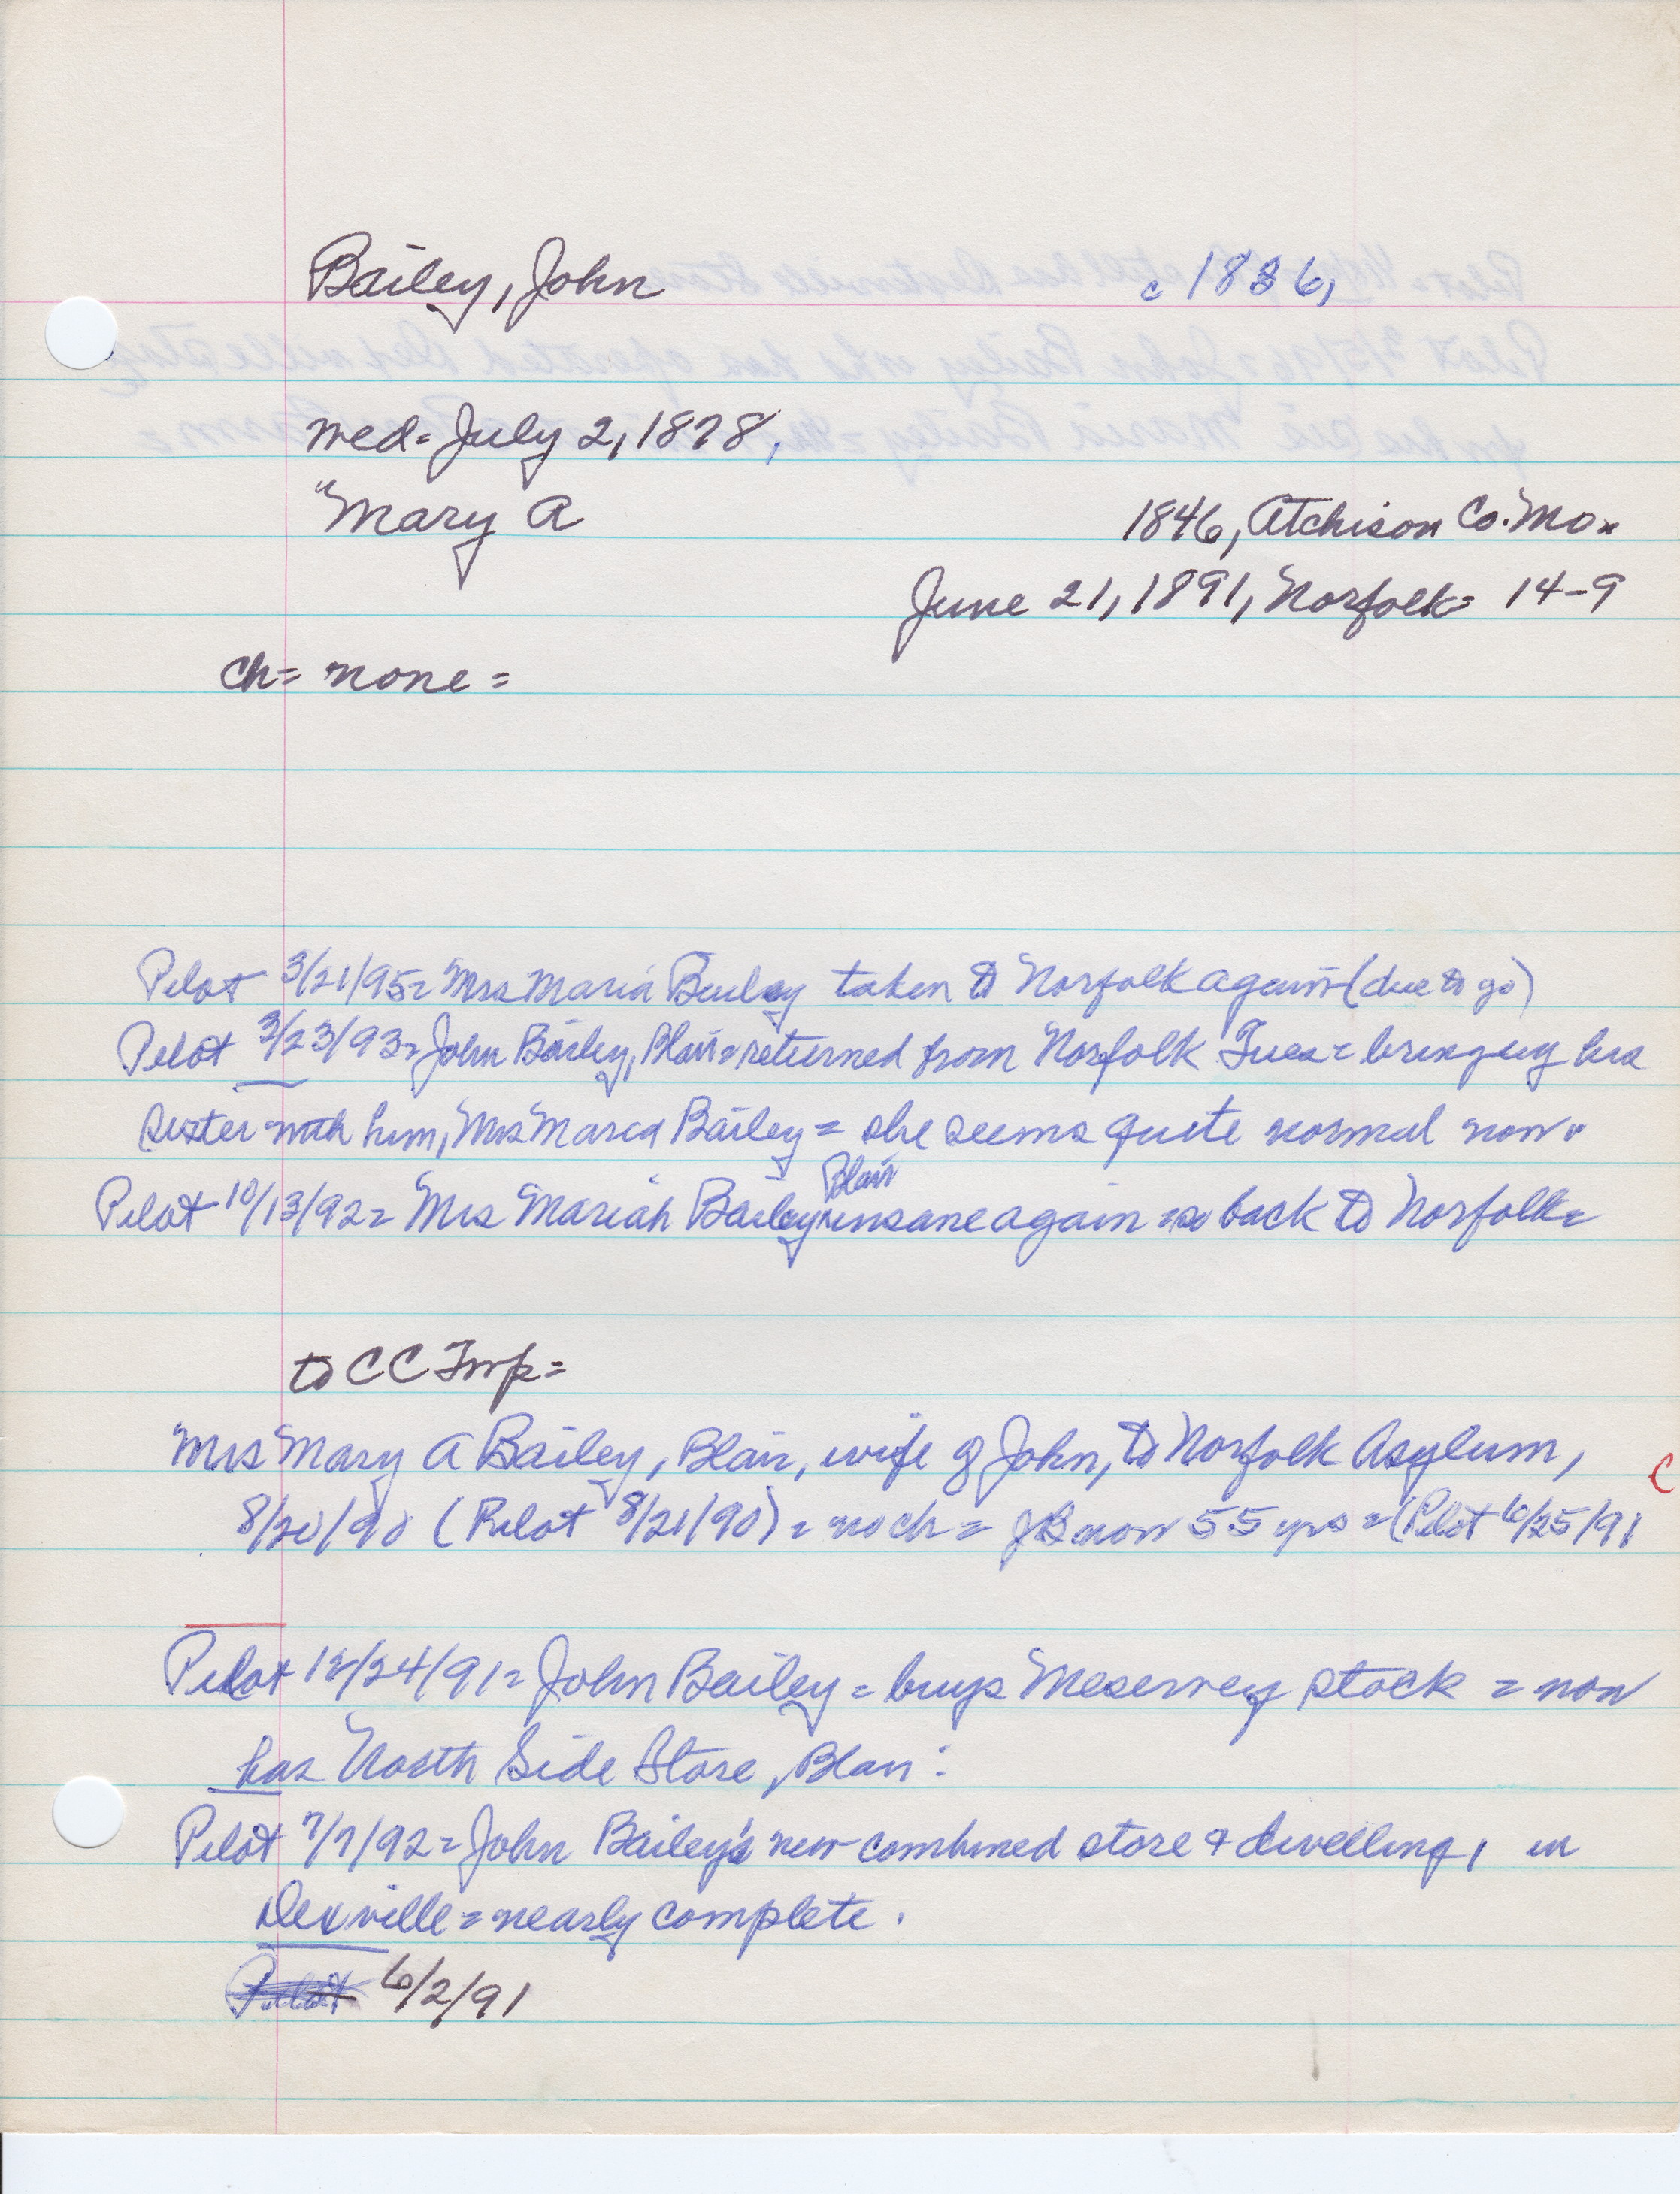 Bailey, John c 1836,
med- July 2, 1878,
Mary A 1846, Atchison Co. Mo-
June 21, 1891, Norfolk= 14-9
ch= none =
Pilot 3/21/95= Mrs Maria Bailey taken to Norfolk again (due to go)
Pilot 3/23/93= John Bailey, Blair= returned from Norfolk Tues= bringing his
sister with him, Mrs Maria Bailey = she seems quite normal now.
Blair
Pilot 10/13/92= Mrs Mariah Bailey insane again = so back to Norfolk=
to CC Twp=
Mrs Mary A Bailey, Blair, wife of John, to Norfolk Asylum, C
8/20/90 (Pilot 8/21/90) = no ch = JB now 55 yrs = (Pilot 6/25/91
Pilot 12/24/91= John Bailey = buys Meservey stock = now
has North Side Store, Blair:
Pilot 7/7/92= John Bailey's new combined store & dwelling, in
Dexville = nearly complete.
Pilot 6/2/91